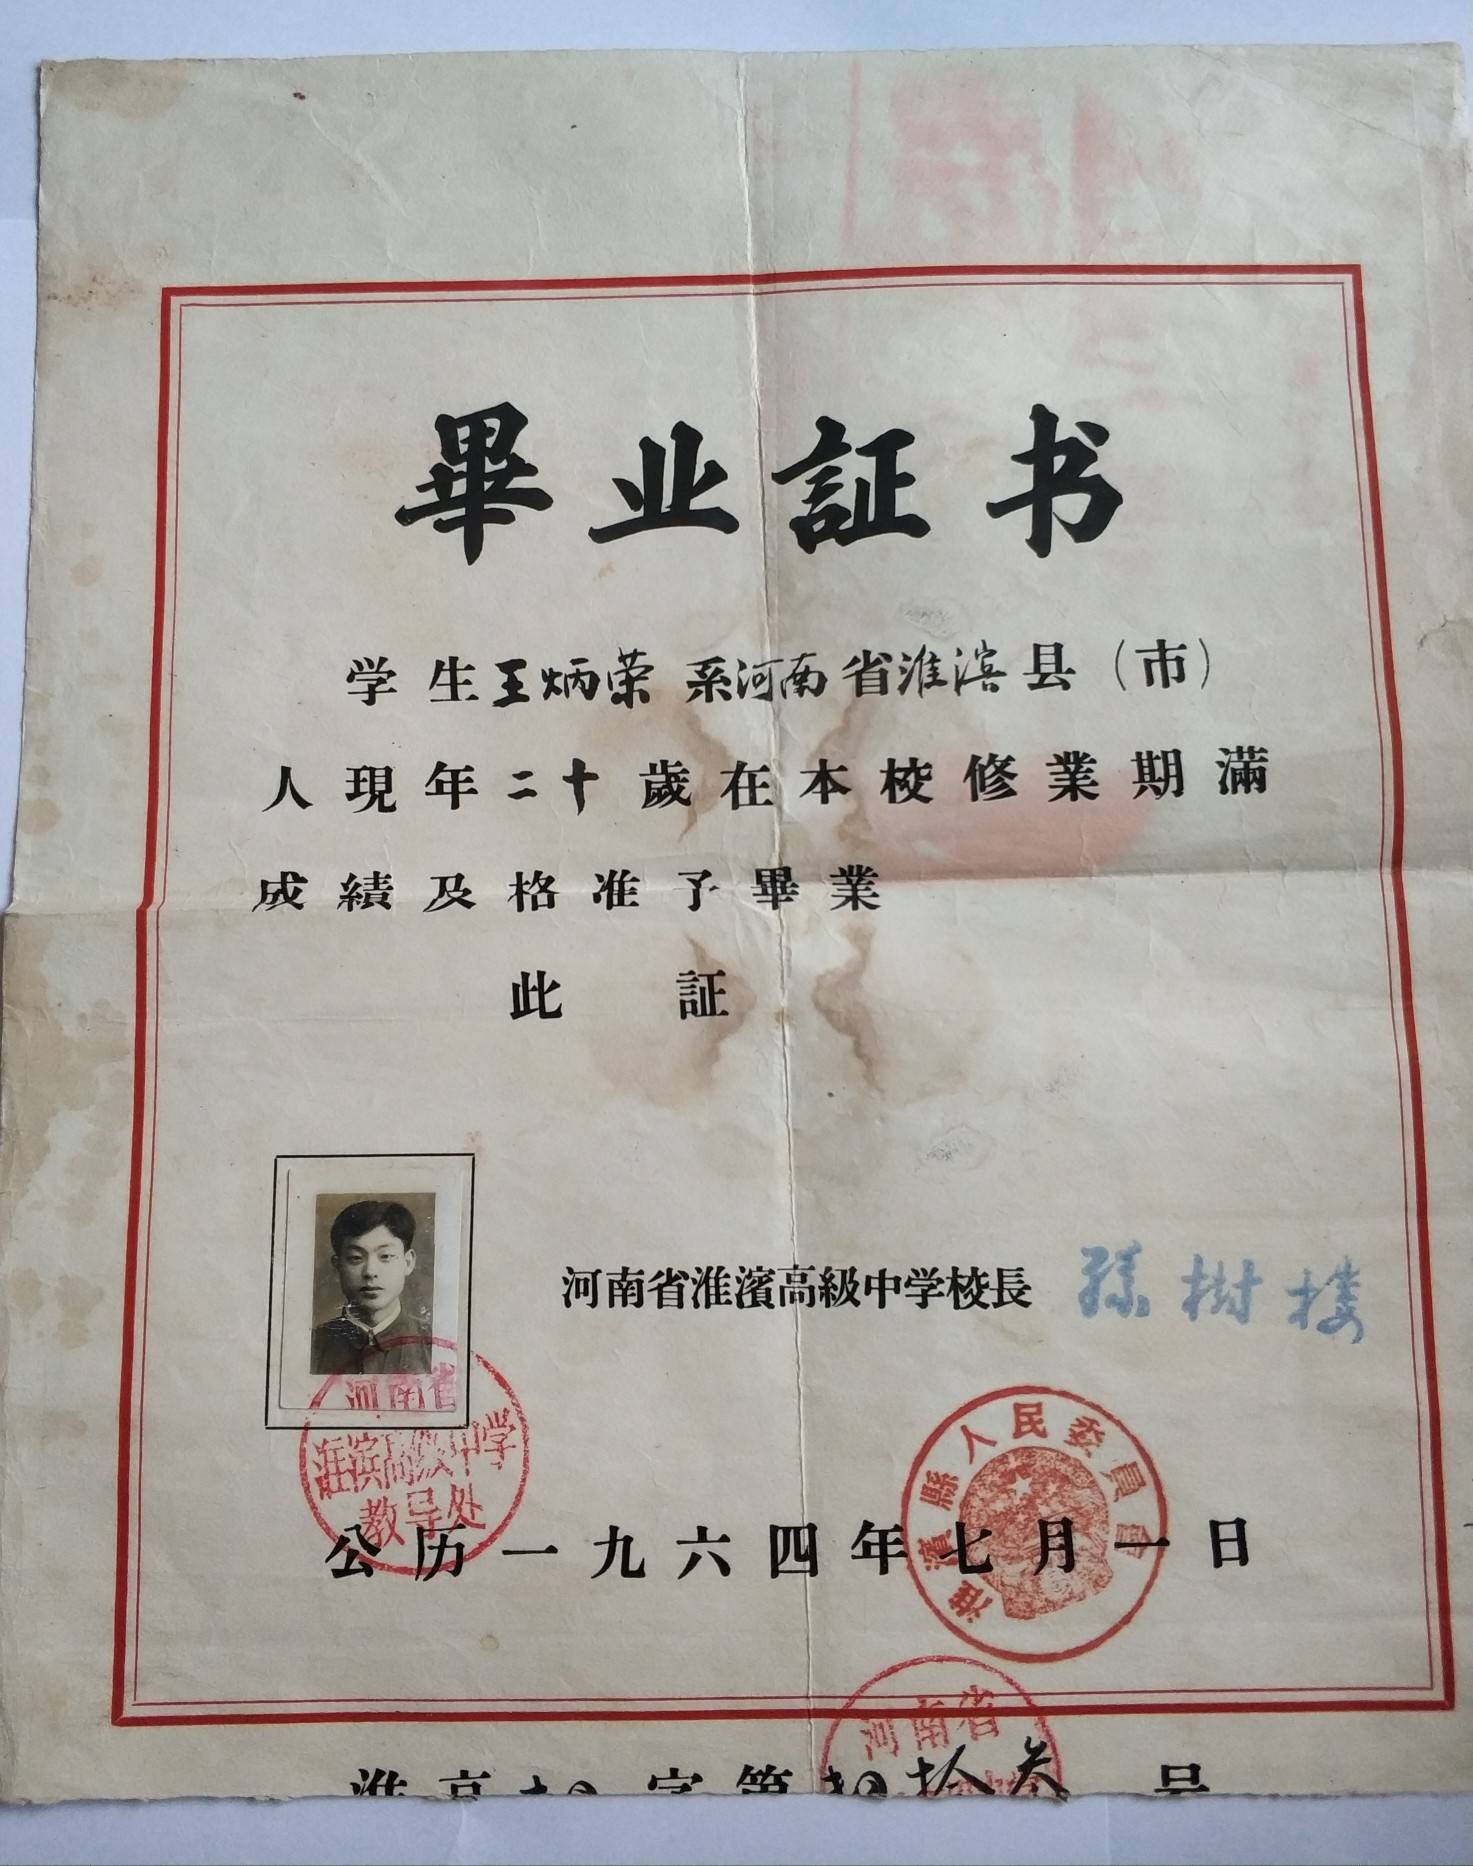 畢业証书
学生王炳荣 系河南省淮滨县（市）
人現年二十歲在本校修業期滿
成績及格准予畢業
此証
河南省淮濱高級中学校長 孫樹楼
河南省
淮滨高级中学
教导处
淮濱縣人民委員會
公历一九六四年七月一日
河南省
淮高 字第 拾叁 号